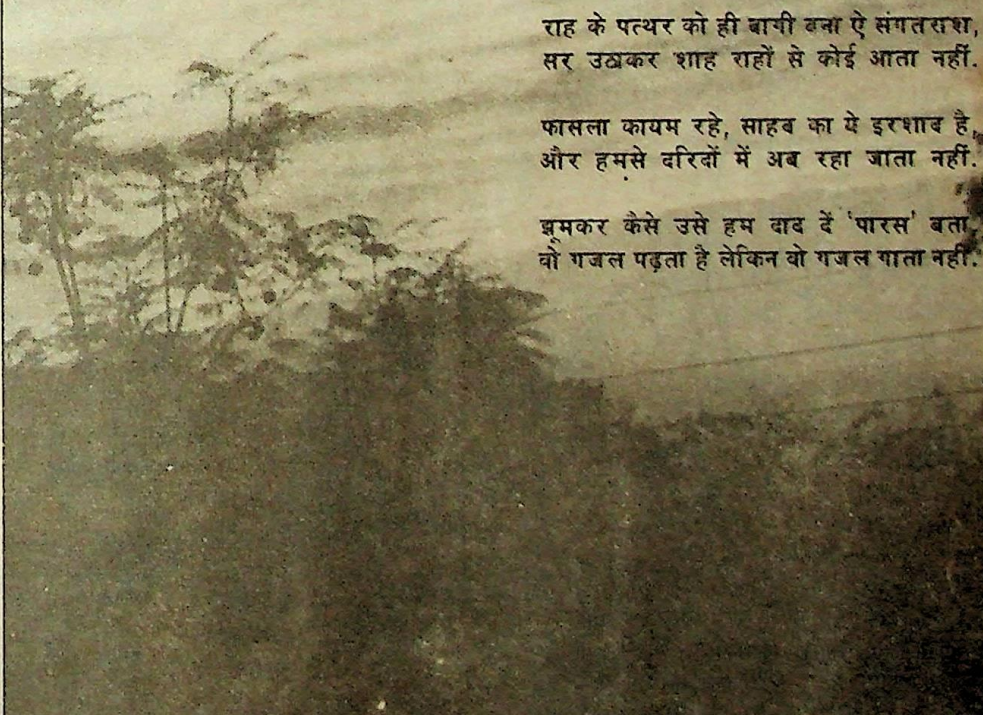 राह के पत्थर को ही बागी बना ऐ संगतराश,
सर उठाकर शाह राहों से कोई आता नहीं.
फासला कायम रहे, साहब का ये इरशाद है,
और हमसे दरिदों में अब रहा जाता नहीं.
झूमकर कैसे उसे हम दाद दें 'पारस' बता,
वो गजल पढ़ता है लेकिन वो गजल गाता नहीं.